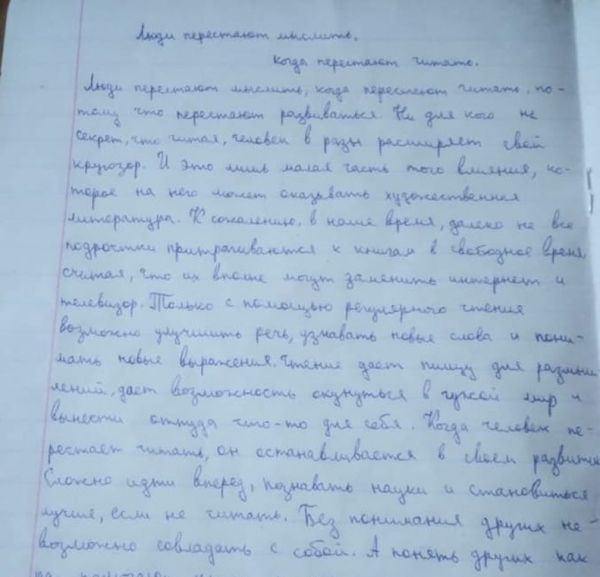 Люди перестают мыслить,
когда перестают читать.
Люди перестают мыслить, когда перестают читать, по-
тому что перестают развиваться. Ни для кого не
секрет, что читая, человек в разы расширяет свой
кругозор. И это лишь малая часть того влияния, ко-
торое на него может оказывать художественная
литература. К сожалению, в наше время, далеко не все
подростки притрагиваются к книгам в свободное время
считая, что их вполне могут заменить интернет и
телевизор. Только с помощью регулярного чтения
возможно улучшить речь, узнавать новые слова и пони-
мать новые выражения. Чтение дает пищу для размыш
лений, дает возможность окунуться в чужой мир и
вынести оттуда что-то для себя. Когда человек пе-
рестает читать, он останавливается в своем развитии
Сложно идти вперед, познавать науки и становиться
лучше, если не читать. Без понимания других не-
возможно совладать с собой. А понять других как